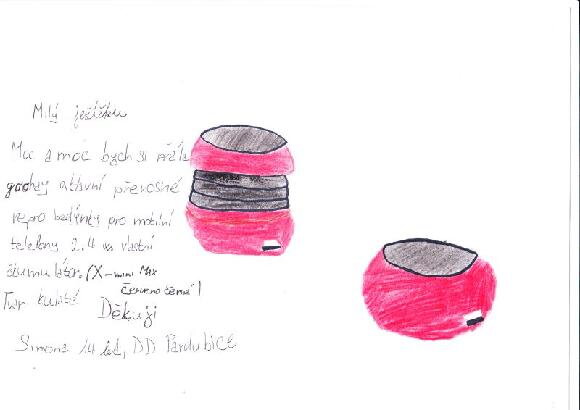 Milý ježíšku
Moc a moc bych si přála
a hlavní přenosné
repro bedýnky pro mobilní
telefony 2.4 na vlastní
X-mini Max
červeno černé!
Tvar kulaté Děkuji
Simona 14 let, DD Pardubice